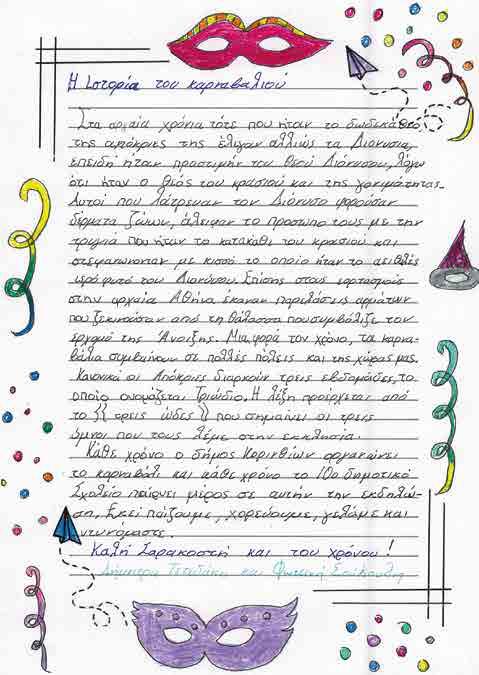 Η ιστορία του καρναβαλιού
Στα αρχαία χρόνια τότε που ήταν το δωδεκάθεο
της απόκριες της έλεγαν αλλιώς τα Διονύσια,
επειδή ήταν προς τιμήν του θεού Διόνυσου, λόγω
ότι ήταν ο θεός του κρασιού και της γονιμότητας.
Αυτοί που λάτρευαν τον Διόνυσο φορούσαν
δέρματα ζώων, άλειφαν το πρόσωπο τους με την
τρυγιά που ήταν το κατακάθι του κρασιού και
στεφανώνονταν με κισσό το οποίο ήταν το αειθαλές
ιερό φυτό του Διονύσου. Επίσης στους εορτασμούς
στην αρχαία Αθήνα έκαναν παρελάσεις αρμάτων
που ξεκινούσαν από τη θάλασσα που συμβόλιζε τον
ερχομό της Άνοιξης. Μια φορά τον χρόνο, τα καρνα-
βάλια συμβαίνουν σε πολλές πόλεις και της χώρας μας.
Κανονικά οι Απόκριες διαρκούν τρεις εβδομάδες, το
οποίο ονομάζεται Τριώδιο. Η λέξη προέρχεται από
το {{ τρεις ώδες }} που σημαίνει οι τρεις
ύμνοι που τους λέμε στην εκκλησία.
Κάθε χρόνο ο δήμος Κορινθίων οργανώνει
το καρναβάλι και κάθε χρόνο το 10ο δημοτικό
Σχολείο παίρνει μέρος σε αυτήν την εκδηλώ-
ση. Εκεί παίζουμε, χορεύουμε, γελάμε και
ντυνόμαστε.
Καλή Σαρακοστή και του χρόνου!
Δήμητρα και Φωτεινή